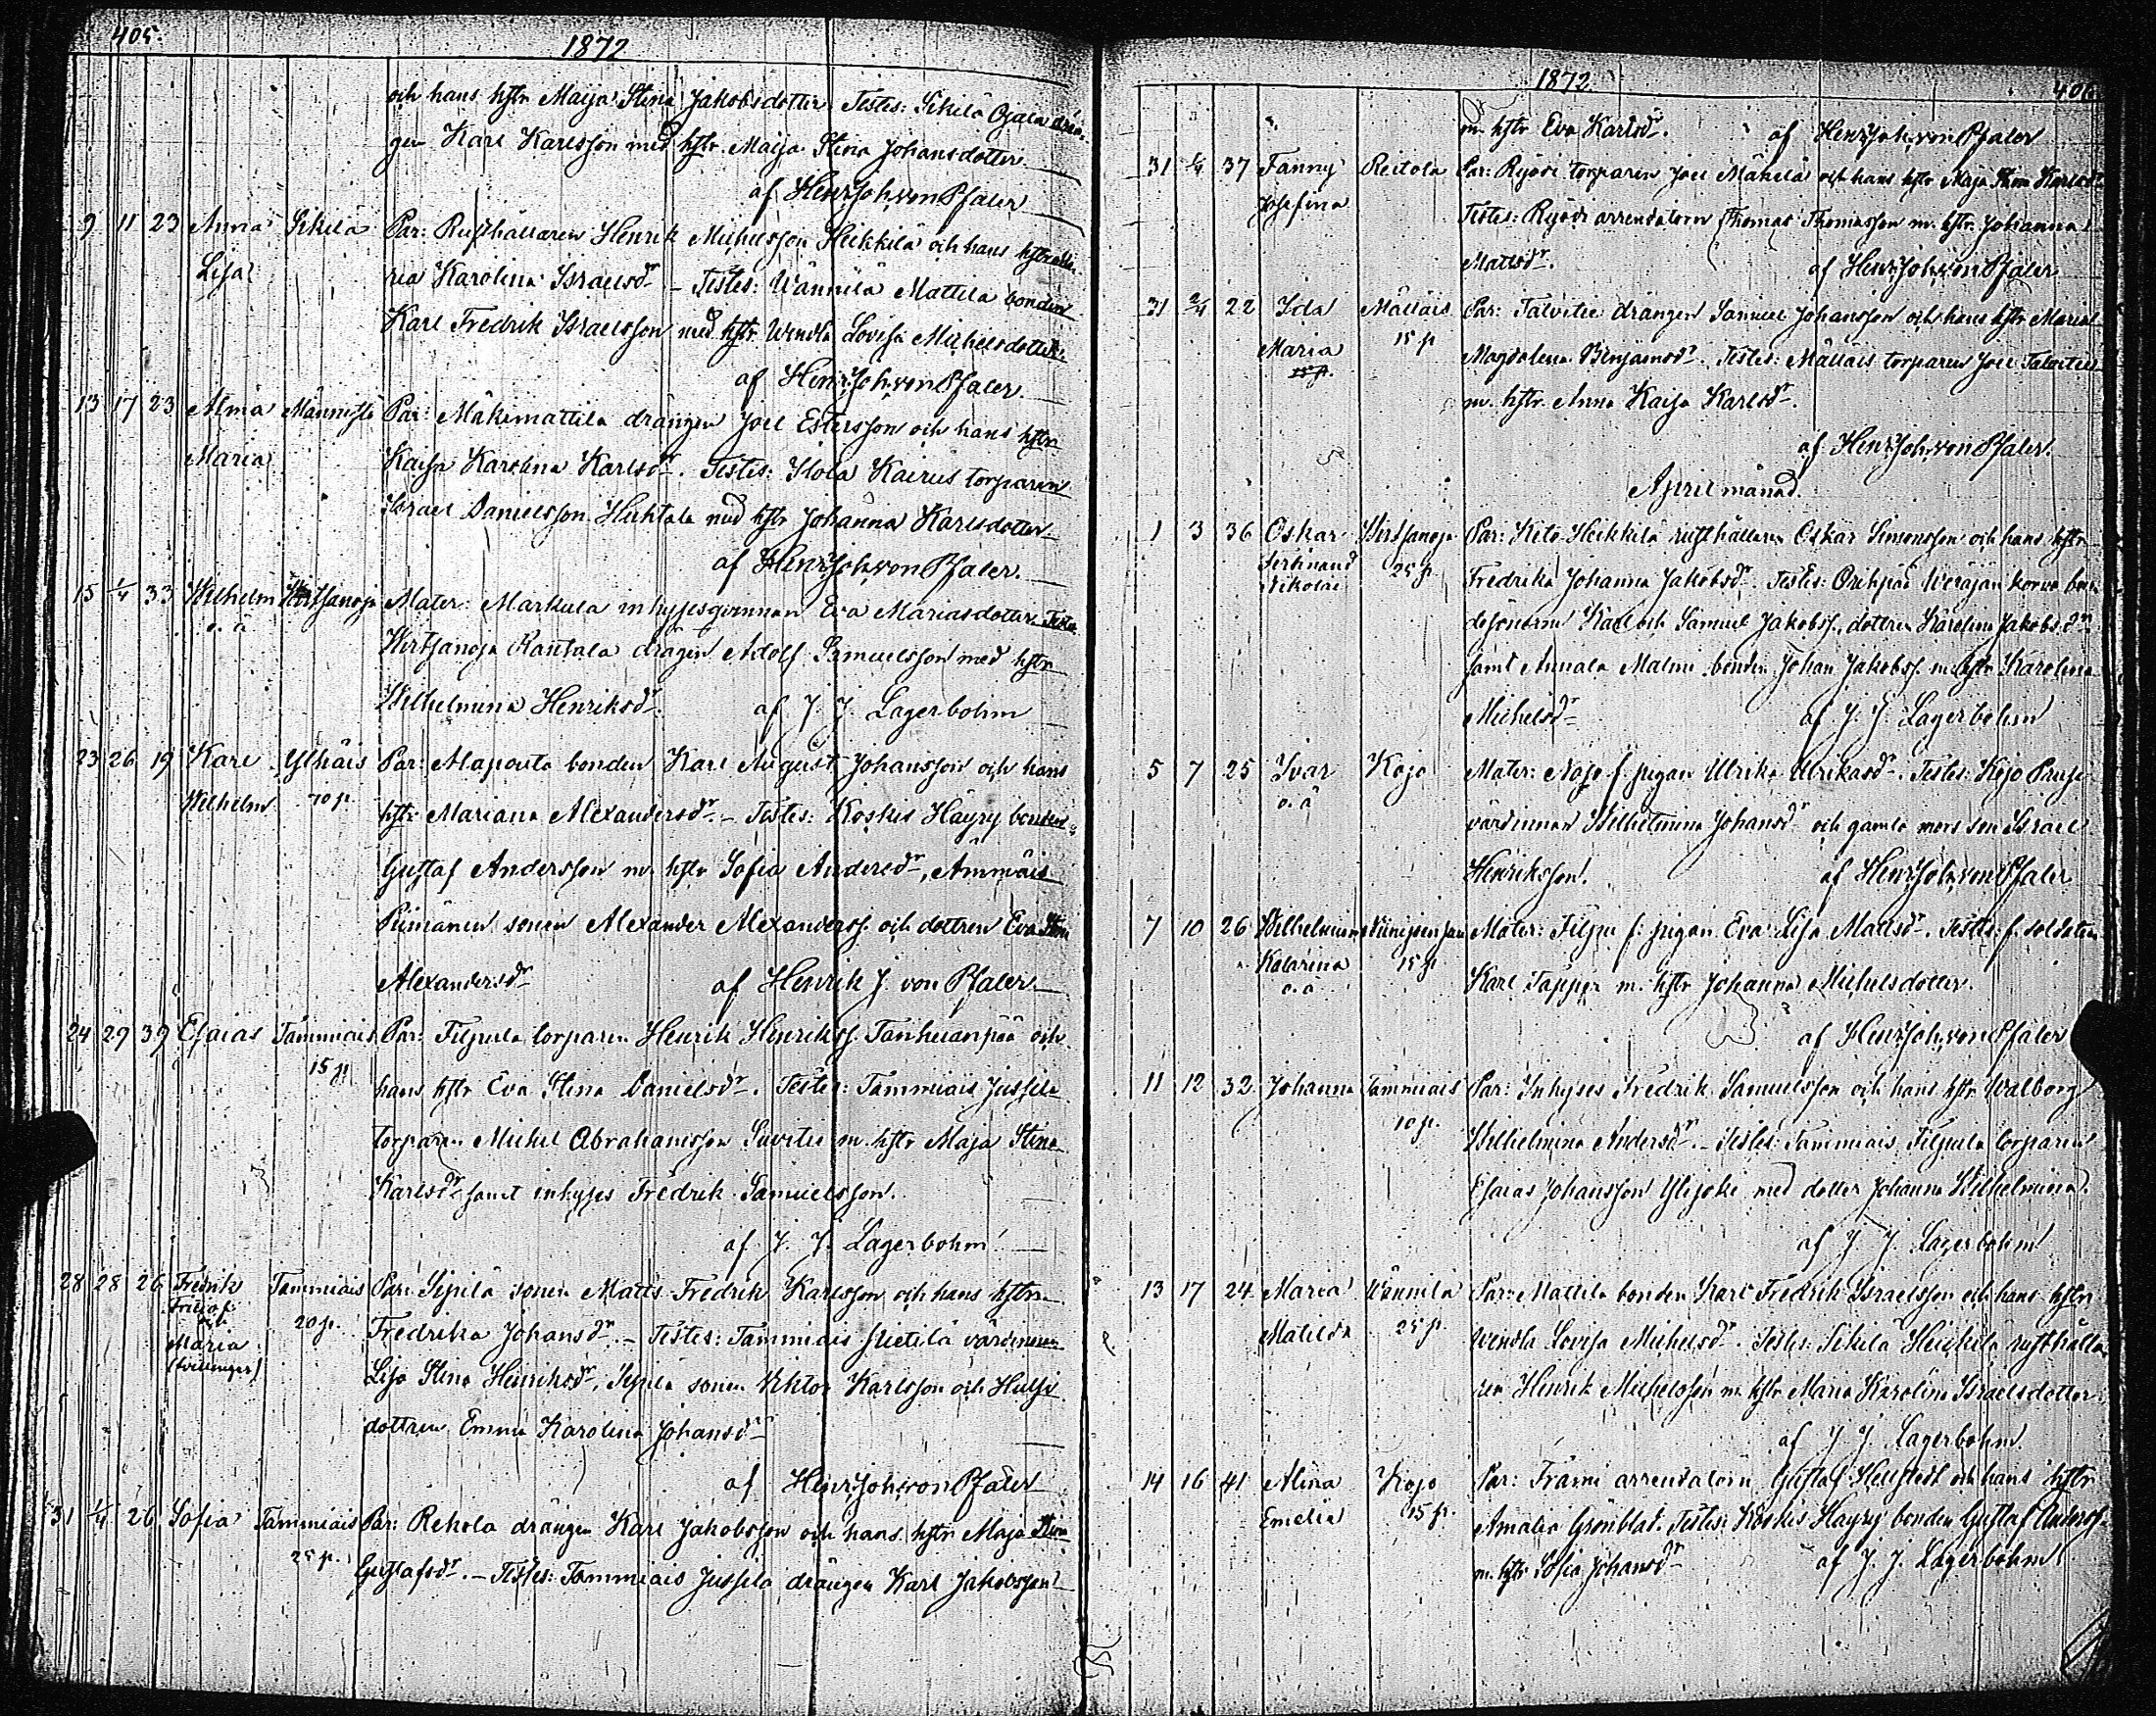 405.
1872
och hans hstr Maija Stina Jakobsdotter. Testes: Sikilä Ojala drän-
gen Karl Karlsson med hstr. Maija Stina Johansdotter.
af Henr. Joh. von Pfaler
9 11 23 Anna Sikilä Par: Rusthållaren Henrik Michelsson Heikkilä och hans hstr Ma-
Lisa ria Karolina Israelsdr. – Testes: Wännilä Mattila bonden
Karl Fredrik Israelsson med hstr. Wendla Lovisa Michelsdotter.
af Henr. Joh. von Pfaler.
13 17 23 Alma Männistö Par: Mäkimattila drängen Joel Estersson och hans hstr
Maria Kaisa Karolina Karlsdr. Testes: Isola Kairus torparen
Israel Danielsson Huhtala med hstr Johanna Karlsdotter.
af Henr. Joh. von Pfaler.
15 1/4 33 Wilhelm Wirtsanoja Mater: Markula inhysesqvinnan Eva Mariasdotter. Testes
o. ä Wirtsanoja Rautala drägen Adolf Samuelsson med hstr
Wilhelmina Henriksdr. af J. J. Lagerbohm
23 26 19 Karl Ylhäis Par: Alapouta bonden Karl August Johansson och hans
Wilhelm 70 p. hstr Mariana Alexandersdr. – Testes: Koskis Häyry bonden
Gustaf Andersson m. hstr Sofia Andersdr, Ämmäis
Piimänen sonen Alexander Alexanderss. och dottren Eva Stina
Alexandersdr af Henrik J. von Pfaler.
24 29 39 Esaias Tammiais Par: Filpula torparen Henrik Henrikss. Tanhuanpää och
15 p. hans hstr Eva Stina Danielsdr. Testes: Tammiais Jussila
torparen Michel Abrahamsson Suvitie m. hstr Maja Stina
Karlsdr samt inhyses Fredrik Samuelsson.
af J. J. Lagerbohm
28 28 26 Fredrik Tammiais Par: Sipilä sonen Matts Fredrik Karlsson och hans hstr
och 20 p. Fredrika Johansdr. – Testes: Tammiais Pietilä värdinnan
Maria Lisa Stina Henriksdr, Sipilä sonen Viktor Karlsson och
(tvillingar) dottren Emma Karolina Johansdr
af Henr. Joh. von Pfaler
31 1/4 26 Sofia Tammiais Par: Rekola drängen Karl Jakobsson och hans hstr Maja Stina
25 p. Gustafsdr. – Testes: Tammiais Jussila drängen Karl Jakobsson
1872
406
m. hstr Eva Karlsdr. af Henr. Joh. von Pfaler
31 37 Fanny Reitola Par: Ryövi torparen Joel Mäkelä och hans hstr Maja Stina Karlsdr
Josefina Testes: Ryövi arrendatorn Thomas Thomasson m. hstr. Johanna
Mattsdr. af Henr. Joh. von Pfaler
31 2/4 22 Ida Mälläis Par: Talvitie drängen Samuel Johansson och hans hstr Maria
Maria 15 p Magdalena Benjamsdr. Testes: Mälläis torparen Joel Talvitie
15 p. m. hstr. Anna Kaisa Karlsdr.
af Henr. Joh. von Pfaler.
April månad.
1 3 36 Oskar Wirtsanoja Par: Heikkilä rusthållaren Oskar Simonsson och hans hstr
Ferdinand 25 p. Fredrika Johanna Jakobsdr. Testes: Oripää
Nikolai desönerne Karl och Samuel Jakobss., dottren Karolina Jakobsdr
samt Annala Malmi bonden Johan Jakobss. m. hstr Karolina
Michelsdr af J. J. Lagerbohm
5 7 25 Ivar Kojo Mater: Kojo f. pigan Ulrika Ulrikasdr. Testes: Kojo
o. ä värdinnan Wilhelmina Johansdr och gamla mors son Israel
Henriksson. af Henr. Joh. von Pfaler
7 10 26 Wilhelmina Mater: Filpu f. pigan Eva Lisa Mattsdr. Testes: f. soldaten
Katarina 15 p Karl Täpper m. hstr Johanna Michelsdotter.
o. ä
af Henr. Joh. von Pfaler
11 12 32 Johanna Tammiais Par: Inhyses Fredrik Samuelsson och hans hstr Walborg
10 p. Wilhelmina Andersdr. – Testes: Tammiais Filpula torparen
Esaias Johansson Ylijoki med dotter Johanna Wilhelmina.
af J. J. Lagerbohm
13 17 24 Maria Wännilä Par: Mattila bonden Karl Fredrik Israelsson och hans hstr
Matilda 25 p. Wendla Lovisa Michelsdr. Testes: Sikilä Heikkilä rusthålla-
ren Henrik Michelsson m. hstr Maria Karolina Israelsdotter
af J. J. Lagerbohm.
14 16 41 Alina Kojo Par: Främi arrendatorn Gustaf Hellstedt och hans hstr
Emelia 15 p. Amalia Grönblad. Testes: Koskis Häyry bonden Gustaf Anderss.
m. hstr Sofia Johansdr af J. J. Lagerbohm